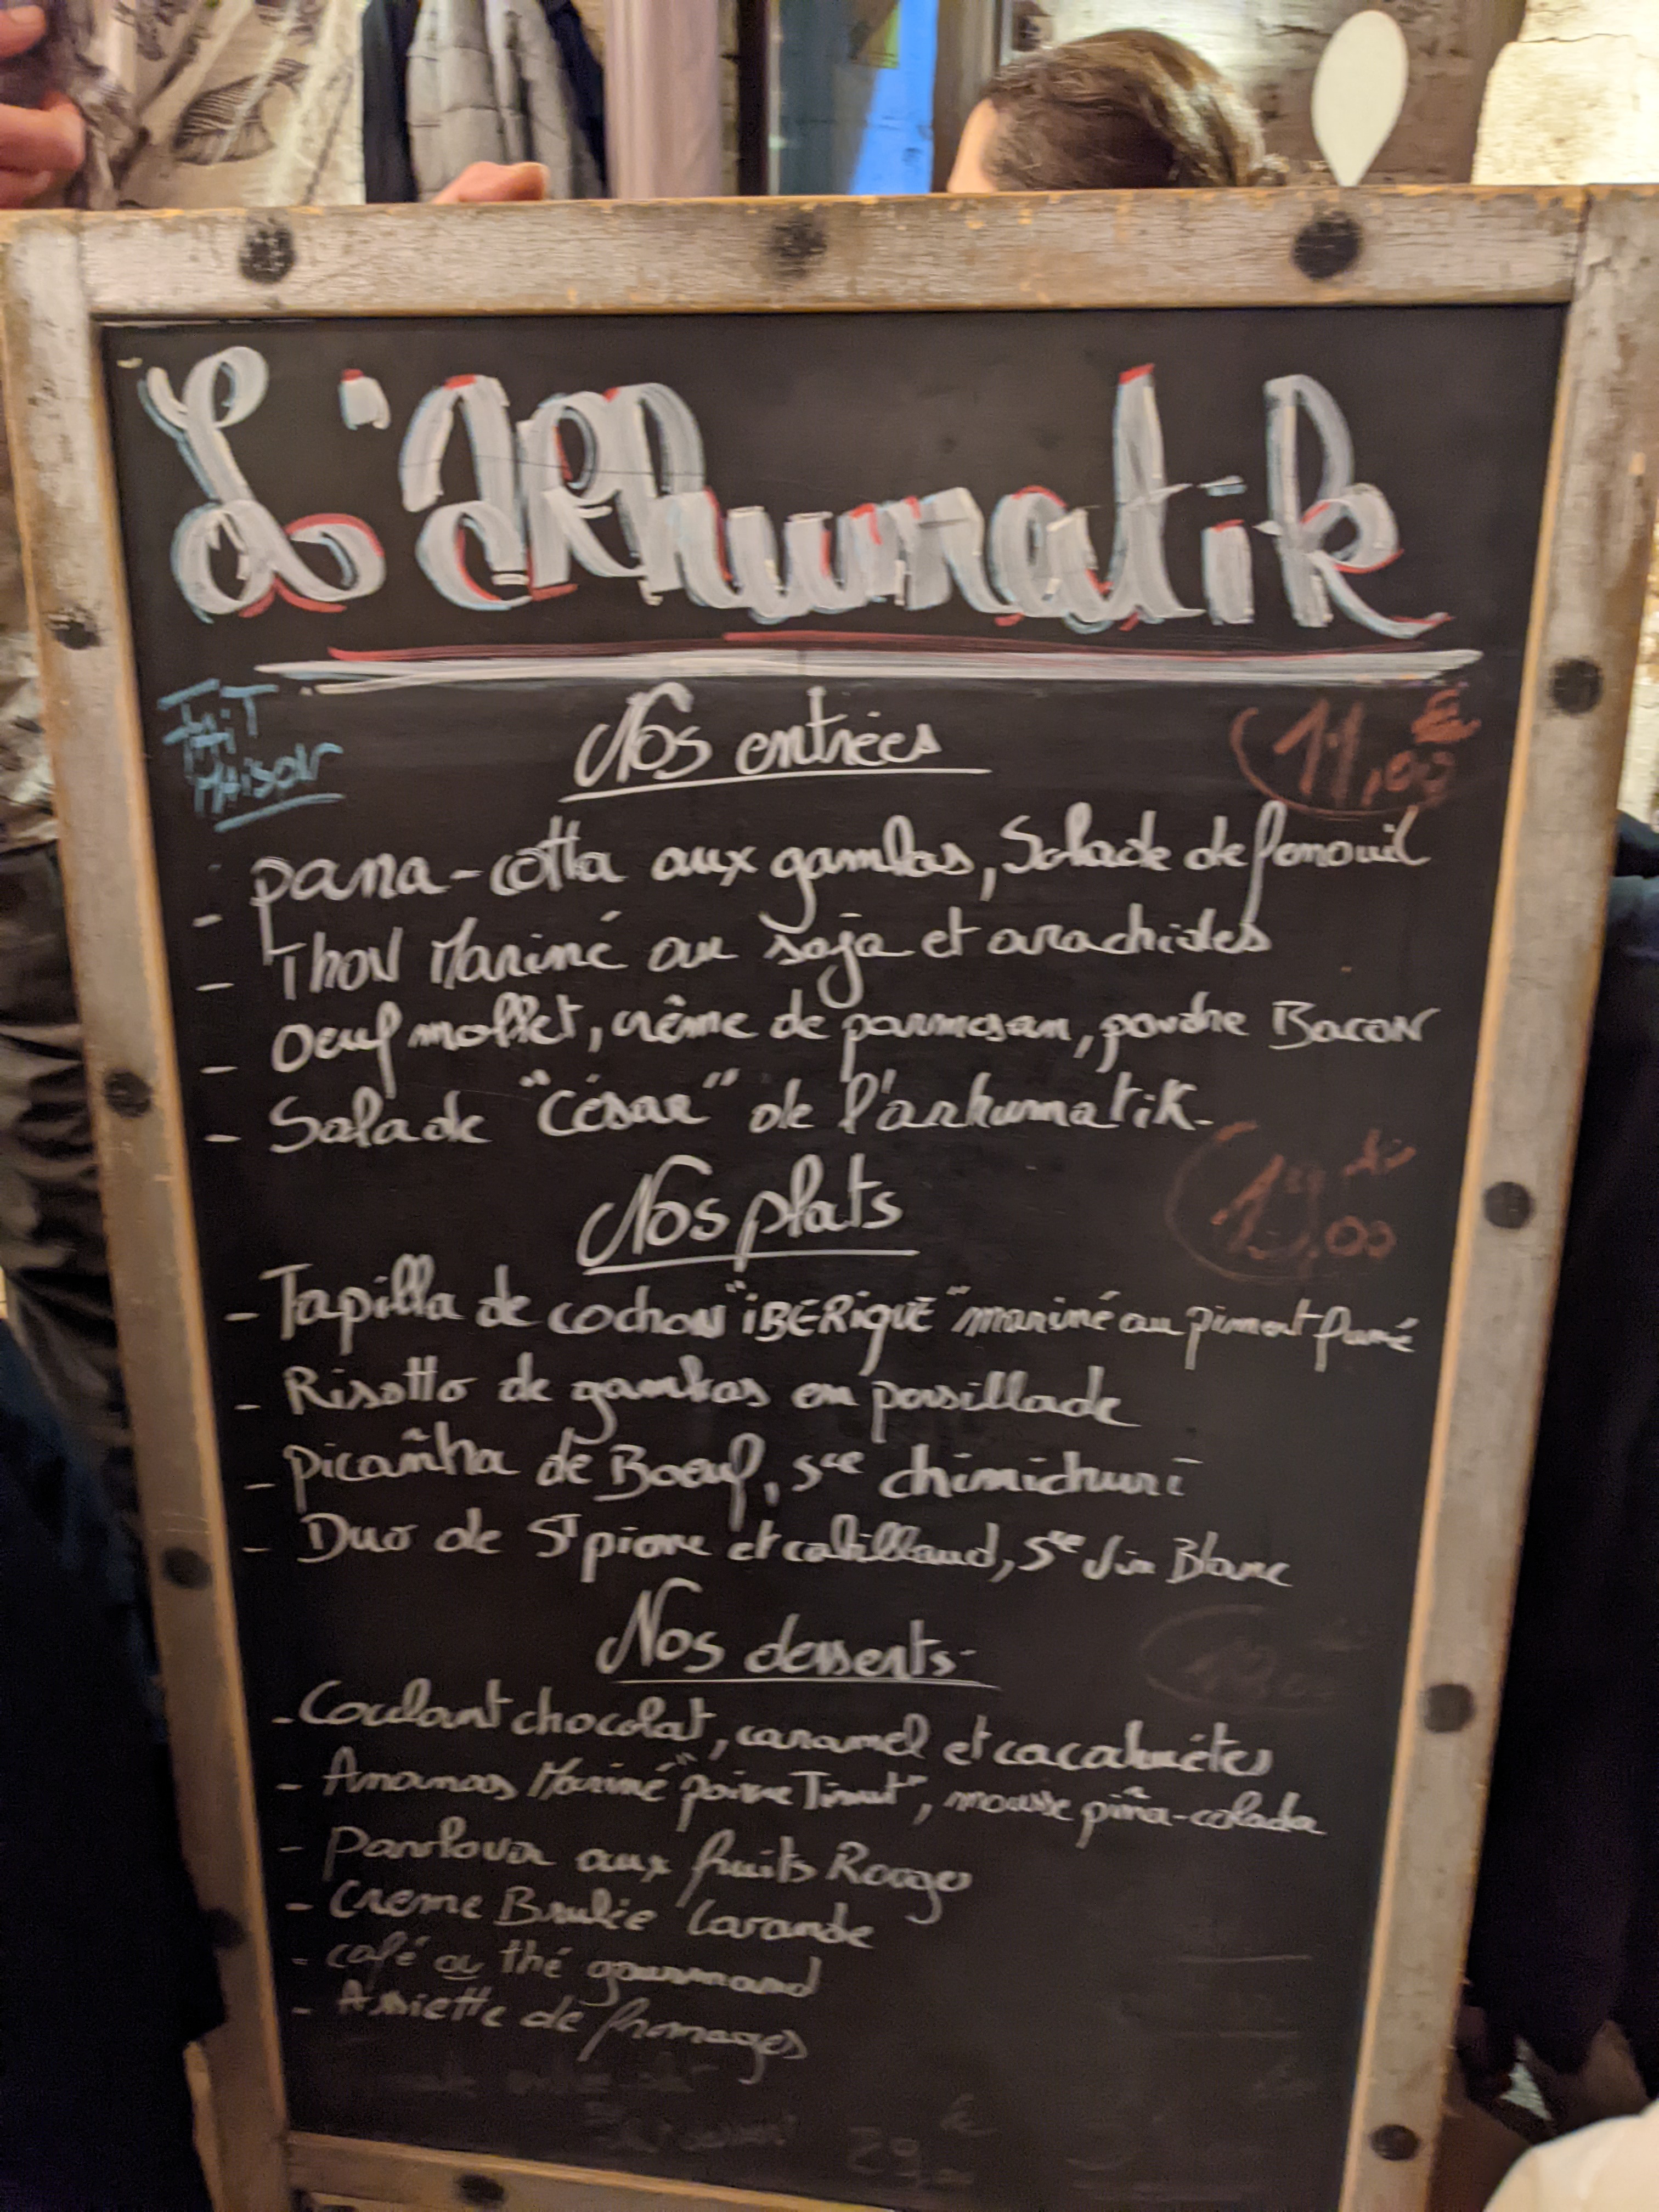 L'ARhumatik
FAiT
MAiSON
Nos entrées
11,00 €
- pana-cotta aux gambas, Salade de fenouil
- Thon Mariné au soja et arachides
- Oeuf mollet, crême de parmesan, poudre Bacon
- Salade "César" de l'arhumatik-
Nos plats
- Tapilla de cochon "iBERiquE" mariné au piment fumé
- Risotto de gambas en persillade
- Picañha de Boeuf, sce chimichuri
- Duo de St pierre et cabillaud, sce Vin Blanc
Nos desserts-
- Coulant chocolat, caramel et cacahuètes
- Ananas Mariné "poivre Timut", mousse piña-colada
- Pavlova aux fruits Rouges
- Creme Brulée Lavande
- café ou thé gourmand
- Assiette de fromages
29, €